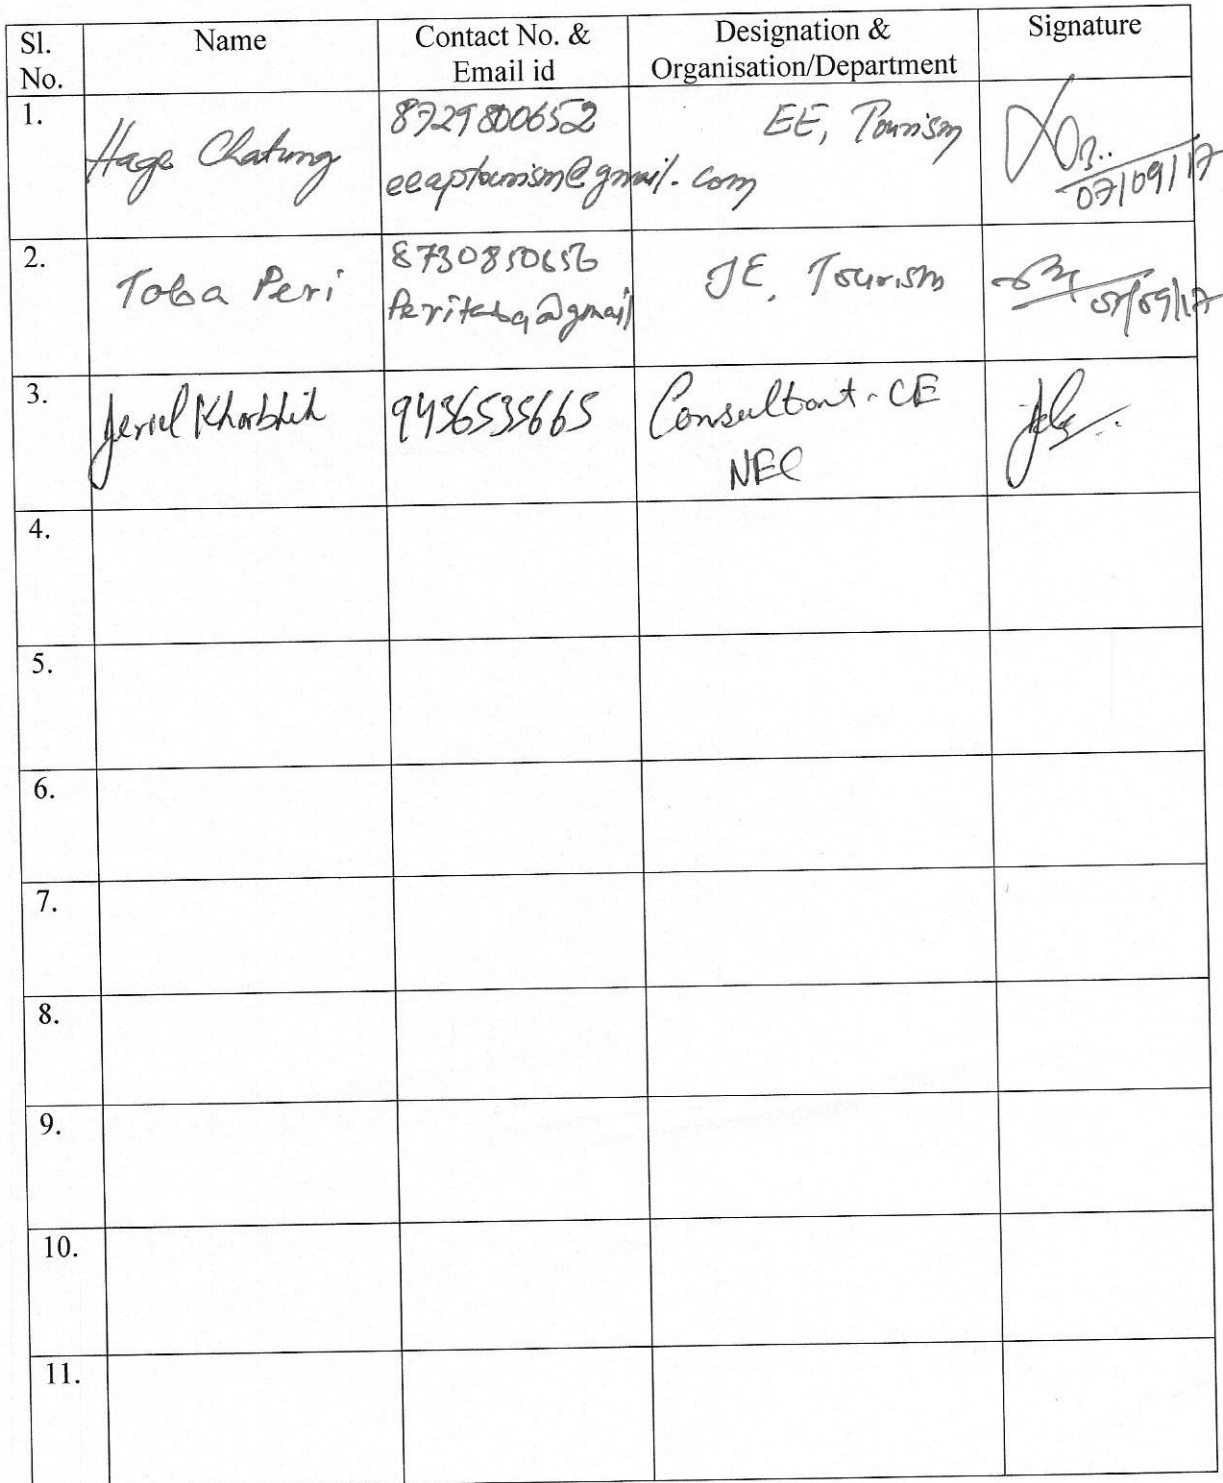 Sl. No. Name Contact No. & Email id Designation & Organisation/Department Signature
1. Hage Chatung 8729800652 EE, Tourism
eeaptourism@gmail.com 07/09/17
2. Toba Peri 8730850656 JE, Tourism
Peritaba@gmail 07/09/17
3. Jeriel Kharbhih 9436535665 Consultant - CE
NEC
4.
5.
6.
7.
8.
9.
10.
11.